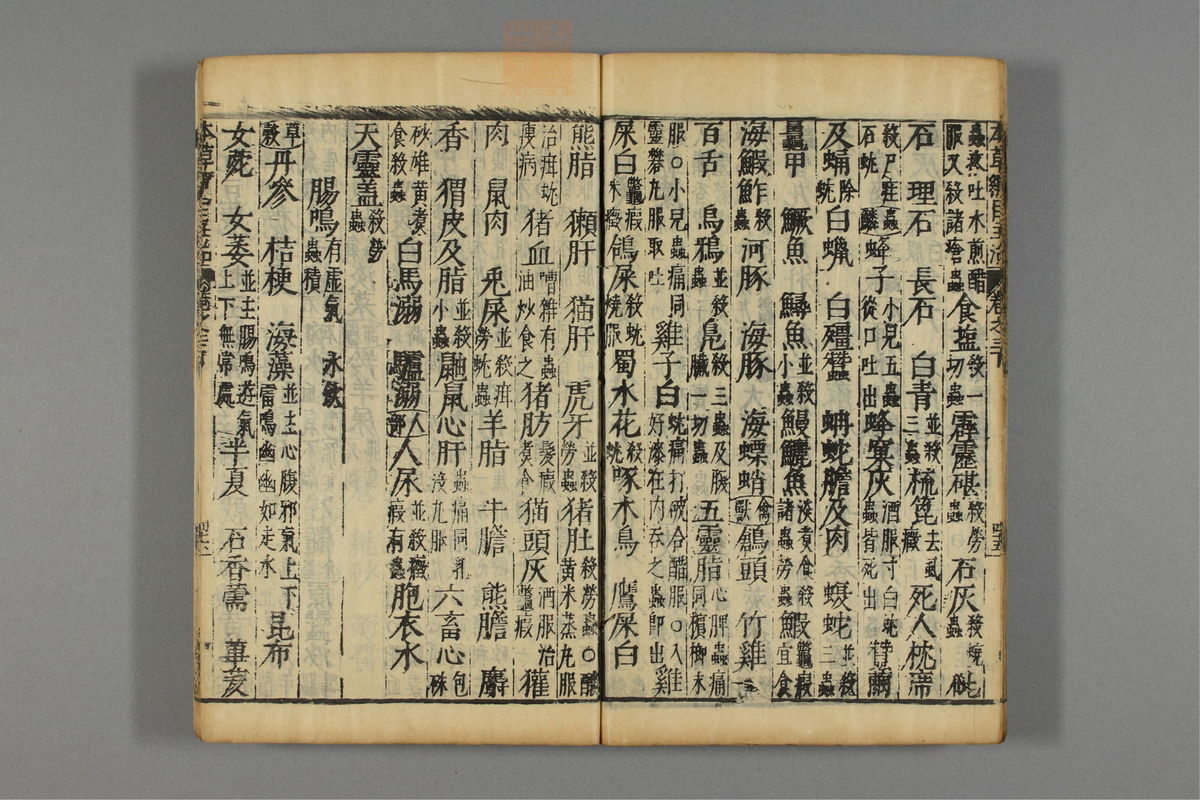 蟲疼吐水煎醋服又殺諸瘡蟲 食塩殺一切蟲 霹靂碪殺勞蟲 石灰殺蟯蟲
石 理石 長石 白青並殺三蟲 梳篦去虱癥 死人枕席
殺尸疰石蚘 蜂子小兒五蟲從口吐出 蜂窠灰酒服寸白蚘蟲皆死出
及蝻除蚘 白蠟 白殭蠶 蚺蛇膽及肉 蝮蛇並殺三蟲
鼉甲 鱖魚 鱘魚並殺小蟲 鰻鱺魚淡煮食殺諸蟲勞蟲 鰕鼈瘕宜食
海鰕鮓殺蟲 河豚 海豚 海螵蛸 禽獸 鶴頭 竹雞
百舌 烏鴉並殺蟲 鳧殺三蟲及腹臟一切蟲 五靈脂心脾蟲痛同檳榔末
服○小兒蟲痛同靈礬丸服取吐 雞子白蚘痛打破合醋服○入好漆在內吞之蟲即出 雞
屎白鼈瘕米癥 鴿屎殺蚘燒服 蜀水花殺蚘 啄木鳥 鷹屎白
熊脂 獺肝 猫肝 虎牙並殺勞蟲 猪肚殺勞蟲○釀黄米蒸丸服
治疳蚘瘦病 猪血嘈雜有蟲油炒食之 猪肪髮瘕煮食 猫頭灰酒服治鼈瘕 獾
肉 鼠肉 兎屎並殺疳勞蚘蟲 羊脂 牛膽 熊膽 麝
香 猬皮及脂並殺小蟲 鼬鼠心肝蟲痛同乳沒丸服 六畜心包硃
砂雄黄煮食殺蟲 白馬溺 驢溺 人部 人尿並殺癥瘕有蟲 胞衣水
天靈盖殺勞蟲
腸鳴有虚氣 水飲 蟲積
草穀 丹參 桔梗 海藻並主心腹邪氣上下雷鳴幽幽如走水 昆布
女菀 女萎並主腸鳴遊氣上下無常處 半夏 石香薷 蓽茇